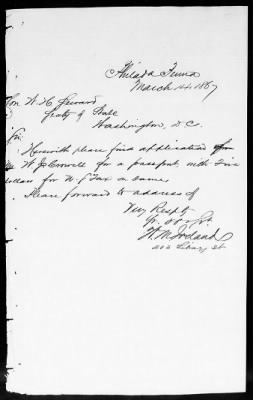 Philada Penna
March 14 1867
Hon. W. H. Seward
Secty of State
Washington, D. C.
Sir
Herewith please find application from
W. J. for a passport, with Five
dollars for U. S. Tax on same.
Please forward to address of
Very Respty
Yr. Obt. Svt.
W. M. Ireland
St